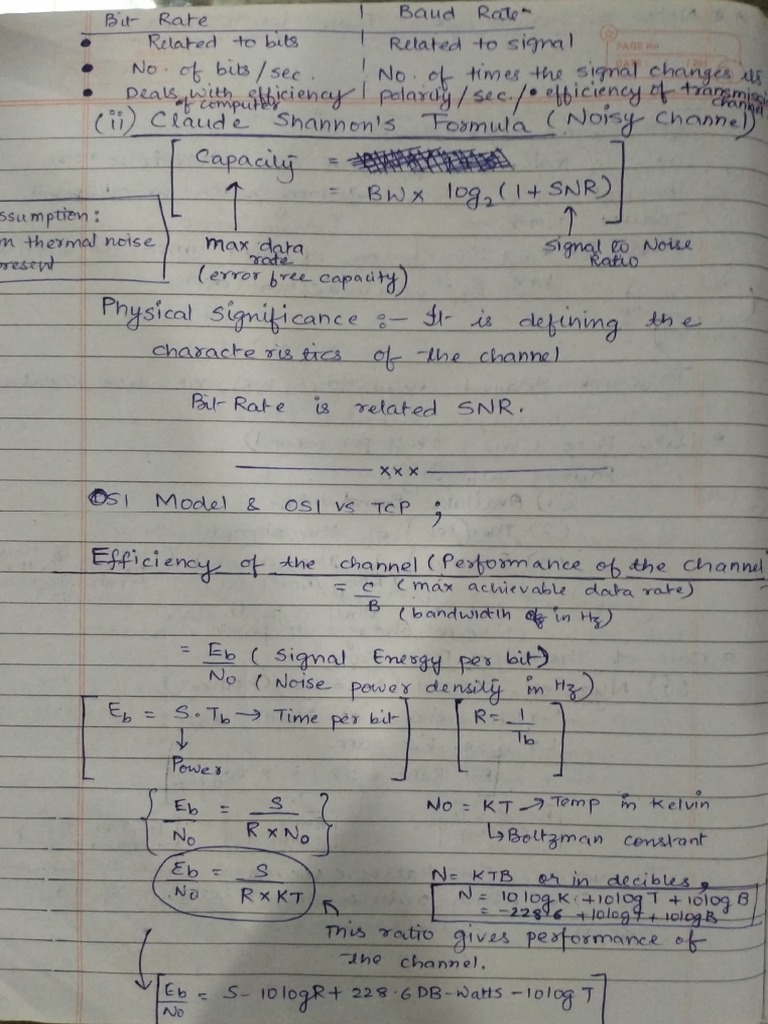 Bit Rate | Baud Rate
• Related to bits | Related to signal
PAGE No
DATE
• No. of bits/sec. | No. of times the signal changes its
• Deals with efficiency of computer | polarity/sec./• efficiency of transmission channel
(ii) Claude Shannon's Formula (Noisy Channel)
Capacity =
= BW x log2 (1 + SNR)
ssumption:
m thermal noise
resent
max data rate
(error free capacity)
Signal to Noise Ratio
Physical Significance :- It is defining the
characteristics of the channel
Bit Rate is related SNR.
xxx
OSI Model & OSI vs TCP ;
Efficiency of the channel (Performance of the channel
= C/B (max achievable data rate)
(bandwidth in Hz)
= Eb (Signal Energy per bit)
No (Noise power density in Hz)
[Eb = S.Tb → Time per bit] [R = 1/Tb]
↓
Power
{Eb/No = S/(R x No)} No = KT → Temp in Kelvin
↳ Boltzman constant
Eb/No = S/(R x KT) N = KTB or in decibles,
N = 10 log K + 10 log T + 10 log B
= -228.6 + 10 log T + 10 log B
This ratio gives performance of
the channel.
[Eb/No = S - 10 log R + 228.6 DB-watts - 10 log T]